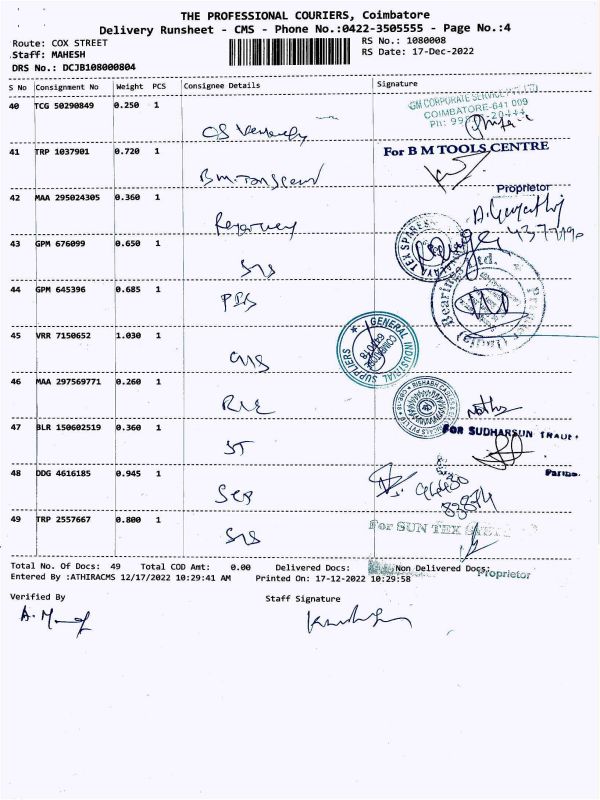 THE PROFESSIONAL COURIERS, Coimbatore
Delivery Runsheet - CMS - Phone No.:0422-3505555 - Page No.:4
Route: COX STREET
RS No.: 1080008
Staff: MAHESH
RS Date: 17-Dec-2022
DRS No.: DCJB108000804
S No Consignment No Weight PCS Consignee Details Signature
40 TCG 50290849 0.250 1
GM CORPORATE SERVICE
COIMBATORE-641 009
41 TRP 1037901 0.720 1
For B M TOOLS CENTRE
42 MAA 295024305 0.360 1
Proprietor
43 GPM 676099 0.650 1
SIS
44 GPM 645396 0.685 1
Bearings Ltd.
45 VRR 7150652 1.030 1
GENERAL INDUSTRIAL SUPPLIERS
46 MAA 297569771 0.260 1
47 BLR 150602519 0.360 1
For SUDHARSUN
ST
48 DDG 4616185 0.945 1
49 TRP 2557667 0.800 1
For SUN TEX
SIS
Total No. Of Docs: 49 Total COD Amt: 0.00 Delivered Docs: Non Delivered Docs:
Entered By :ATHIRACMS 12/17/2022 10:29:41 AM Printed On: 17-12-2022 10:29:58
Proprietor
Verified By Staff Signature